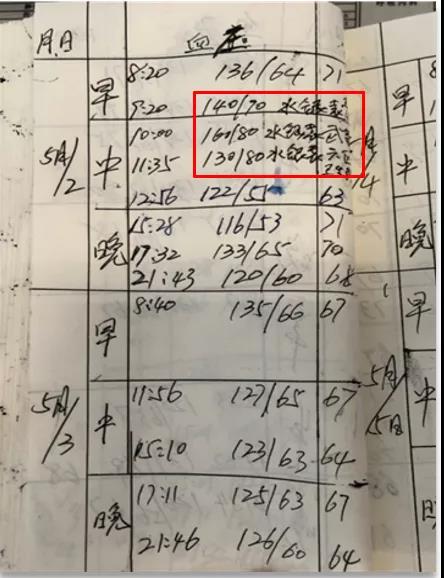 月日 血压
5月/2 早 8:20 136/64 71
9:20 140/70 水银表
中 10:00 160/80 水银表
11:35 130/80 水银表
12:56 122/55 63
晚 15:28 116/53 71
17:32 133/65 70
21:43 120/60 68
5月/3 早 8:40 135/66 67
中 11:56 127/65 67
15:10 123/63 64
晚 17:11 125/63 67
21:46 126/60 64
早
月
14 中
晚
早
5月
5日 中